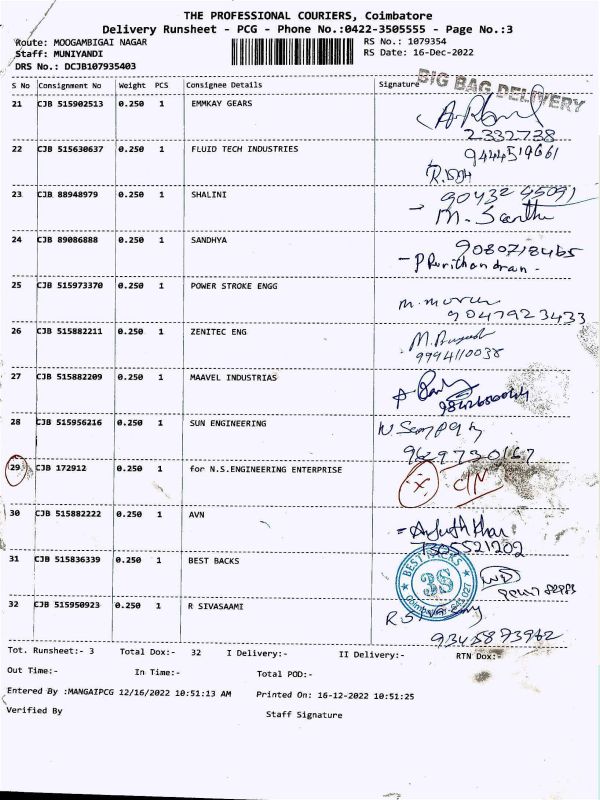 THE PROFESSIONAL COURIERS, Coimbatore
Delivery Runsheet - PCG - Phone No.:0422-3505555 - Page No.:3
Route: MOOGAMBIGAI NAGAR
RS No.: 1079354
Staff: MUNIYANDI
RS Date: 16-Dec-2022
DRS No.: DCJB107935403
S No Consignment No Weight PCS Consignee Details Signature
BIG BAG DELIVERY
21 CJB 515902513 0.250 1 EMMKAY GEARS
2332728
22 CJB 515630637 0.250 1 FLUID TECH INDUSTRIES
9444519661
23 CJB 88948979 0.250 1 SHALINI
90432 45091
24 CJB 89086888 0.250 1 SANDHYA
9080718465
25 CJB 515973370 0.250 1 POWER STROKE ENGG
9047923433
26 CJB 515882211 0.250 1 ZENITEC ENG
9994110038
27 CJB 515882209 0.250 1 MAAVEL INDUSTRIAS
28 CJB 515956216 0.250 1 SUN ENGINEERING
9629730167
29 CJB 172912 0.250 1 for N.S.ENGINEERING ENTERPRISE
x C/N
30 CJB 515882222 0.250 1 AVN
7305521202
31 CJB 515836339 0.250 1 BEST BACKS
BEST BACKS
3S
32 CJB 515950923 0.250 1 R SIVASAAMI
9345873962
Tot. Runsheet:- 3 Total Dox:- 32 I Delivery:- II Delivery:- RTN Dox:-
Out Time:- In Time:- Total POD:-
Entered By :MANGAIPCG 12/16/2022 10:51:13 AM Printed On: 16-12-2022 10:51:25
Verified By Staff Signature